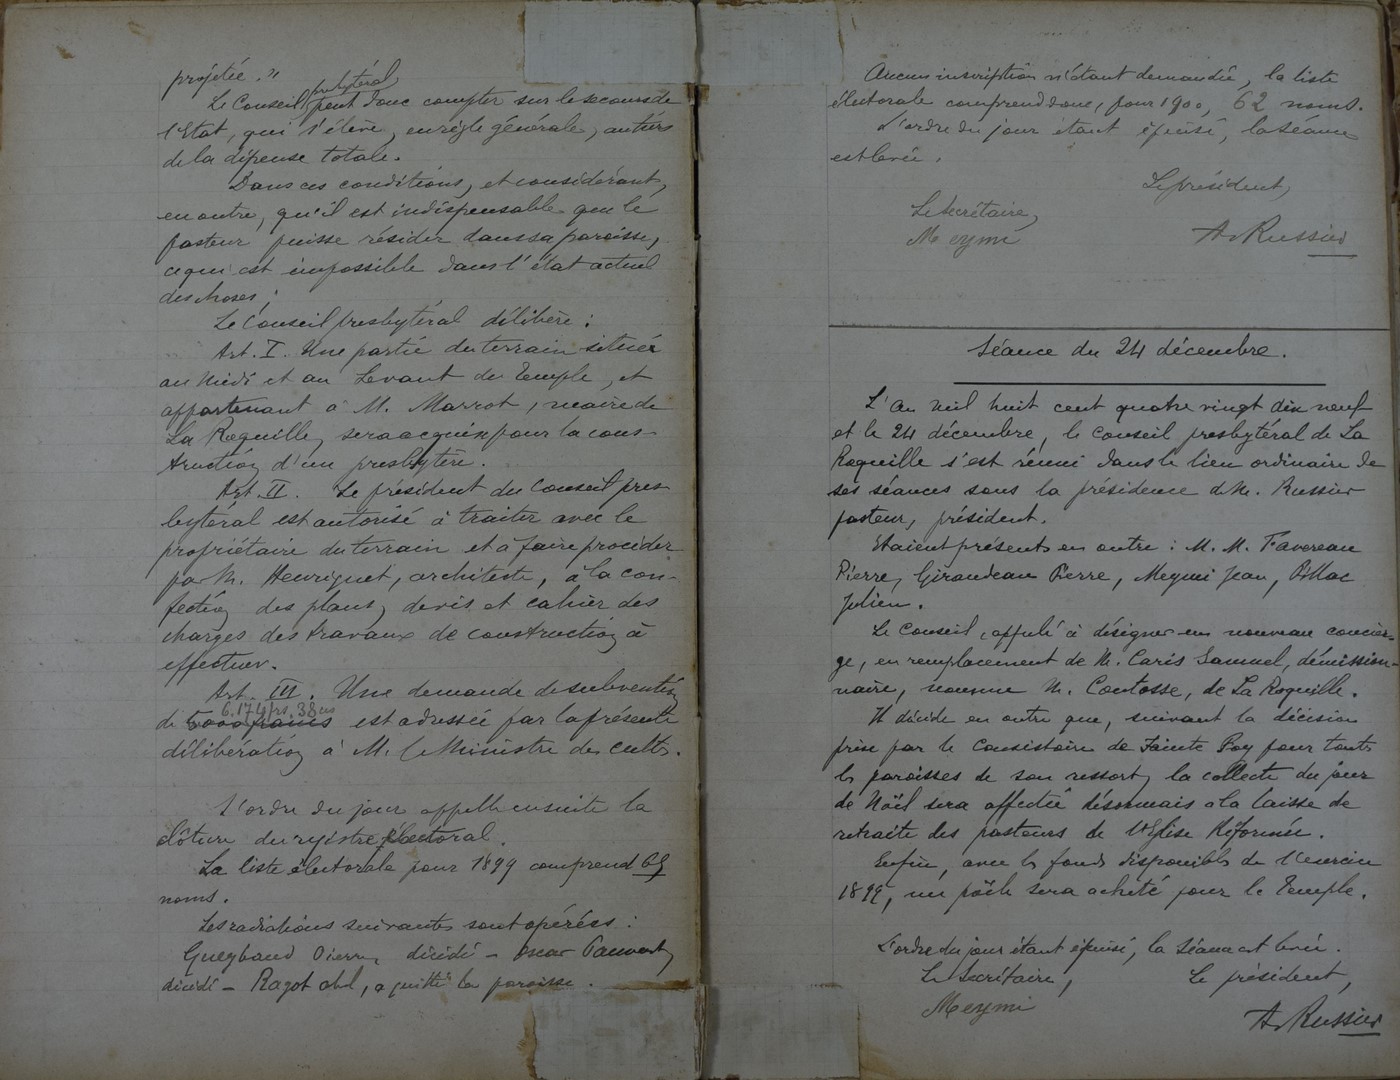 projetée."
presbytéral
Le Conseil peut donc compter sur le secours de
l'Etat, qui s'élève, en règle générale, au tiers
de la dépense totale.
Dans ces conditions, et considérant,
en outre, qu'il est indispensable que le
pasteur puisse résider dans sa paroisse,
ce qui est impossible dans l'état actuel
des choses;
Le Conseil presbytéral délibère:
Art. I. Une partie du terrain située
au Midi et au Levant du Temple, et
appartenant à M. Marrot, maire de
La Roquille, sera acquise pour la cons-
truction d'un presbytère.
Art. II. Le président du Conseil pres-
bytéral est autorisé à traiter avec le
propriétaire du terrain et à faire procéder
par M. Henriquet, architecte, à la con-
fection des plans, devis et cahier des
charges des travaux de construction à
effectuer.
Art. III. Une demande de subvention
6.174 frs. 38 cs
de 6000 francs est adressée par la présente
délibération à M. le Ministre des cultes.
L'ordre du jour appelle ensuite la
clôture du registre électoral.
La liste électorale pour 1899 comprend 65
noms.
Les radiations suivantes sont opérées:
Gueybaud Pierre, décédé - Oscar Pauvert,
décédé - Ragot Abel, a quitté la paroisse.
Aucune inscription n'étant demandée, la liste
électorale comprend donc, pour 1900, 62 noms.
L'ordre du jour étant épuisé, la séance
est levée.
Le président,
Le secrétaire,
Meymi
A. Russier
Séance du 24 décembre.
L'an mil huit cent quatre vingt dix neuf
et le 24 décembre, le Conseil presbytéral de La
Roquille s'est réuni dans le lieu ordinaire de
ses séances sous la présidence d M. Russier
pasteur, président.
Etaient présents en outre: M. M. Favereau
Pierre, Giraudeau Pierre, Meymi Jean, Pillac
Julien.
Le Conseil, appelé à désigner un nouveau concier-
ge, en remplacement de M. Caris Samuel, démission-
naire, nomme M. Coutosse, de La Roquille.
Il décide en outre que, suivant la décision
prise par le Consistoire de Sainte Foy pour toutes
les paroisses de son ressort, la collecte du jour
de Noël sera affectée désormais a la Caisse de
retraite des pasteurs de l'Eglise Réformée.
Enfin, avec les fonds disponibles de l'exercice
1899, un poêle sera acheté pour le Temple.
L'ordre du jour étant épuisé, la séance est levée.
Le secrétaire,
Le président,
Meymi
A. Russier